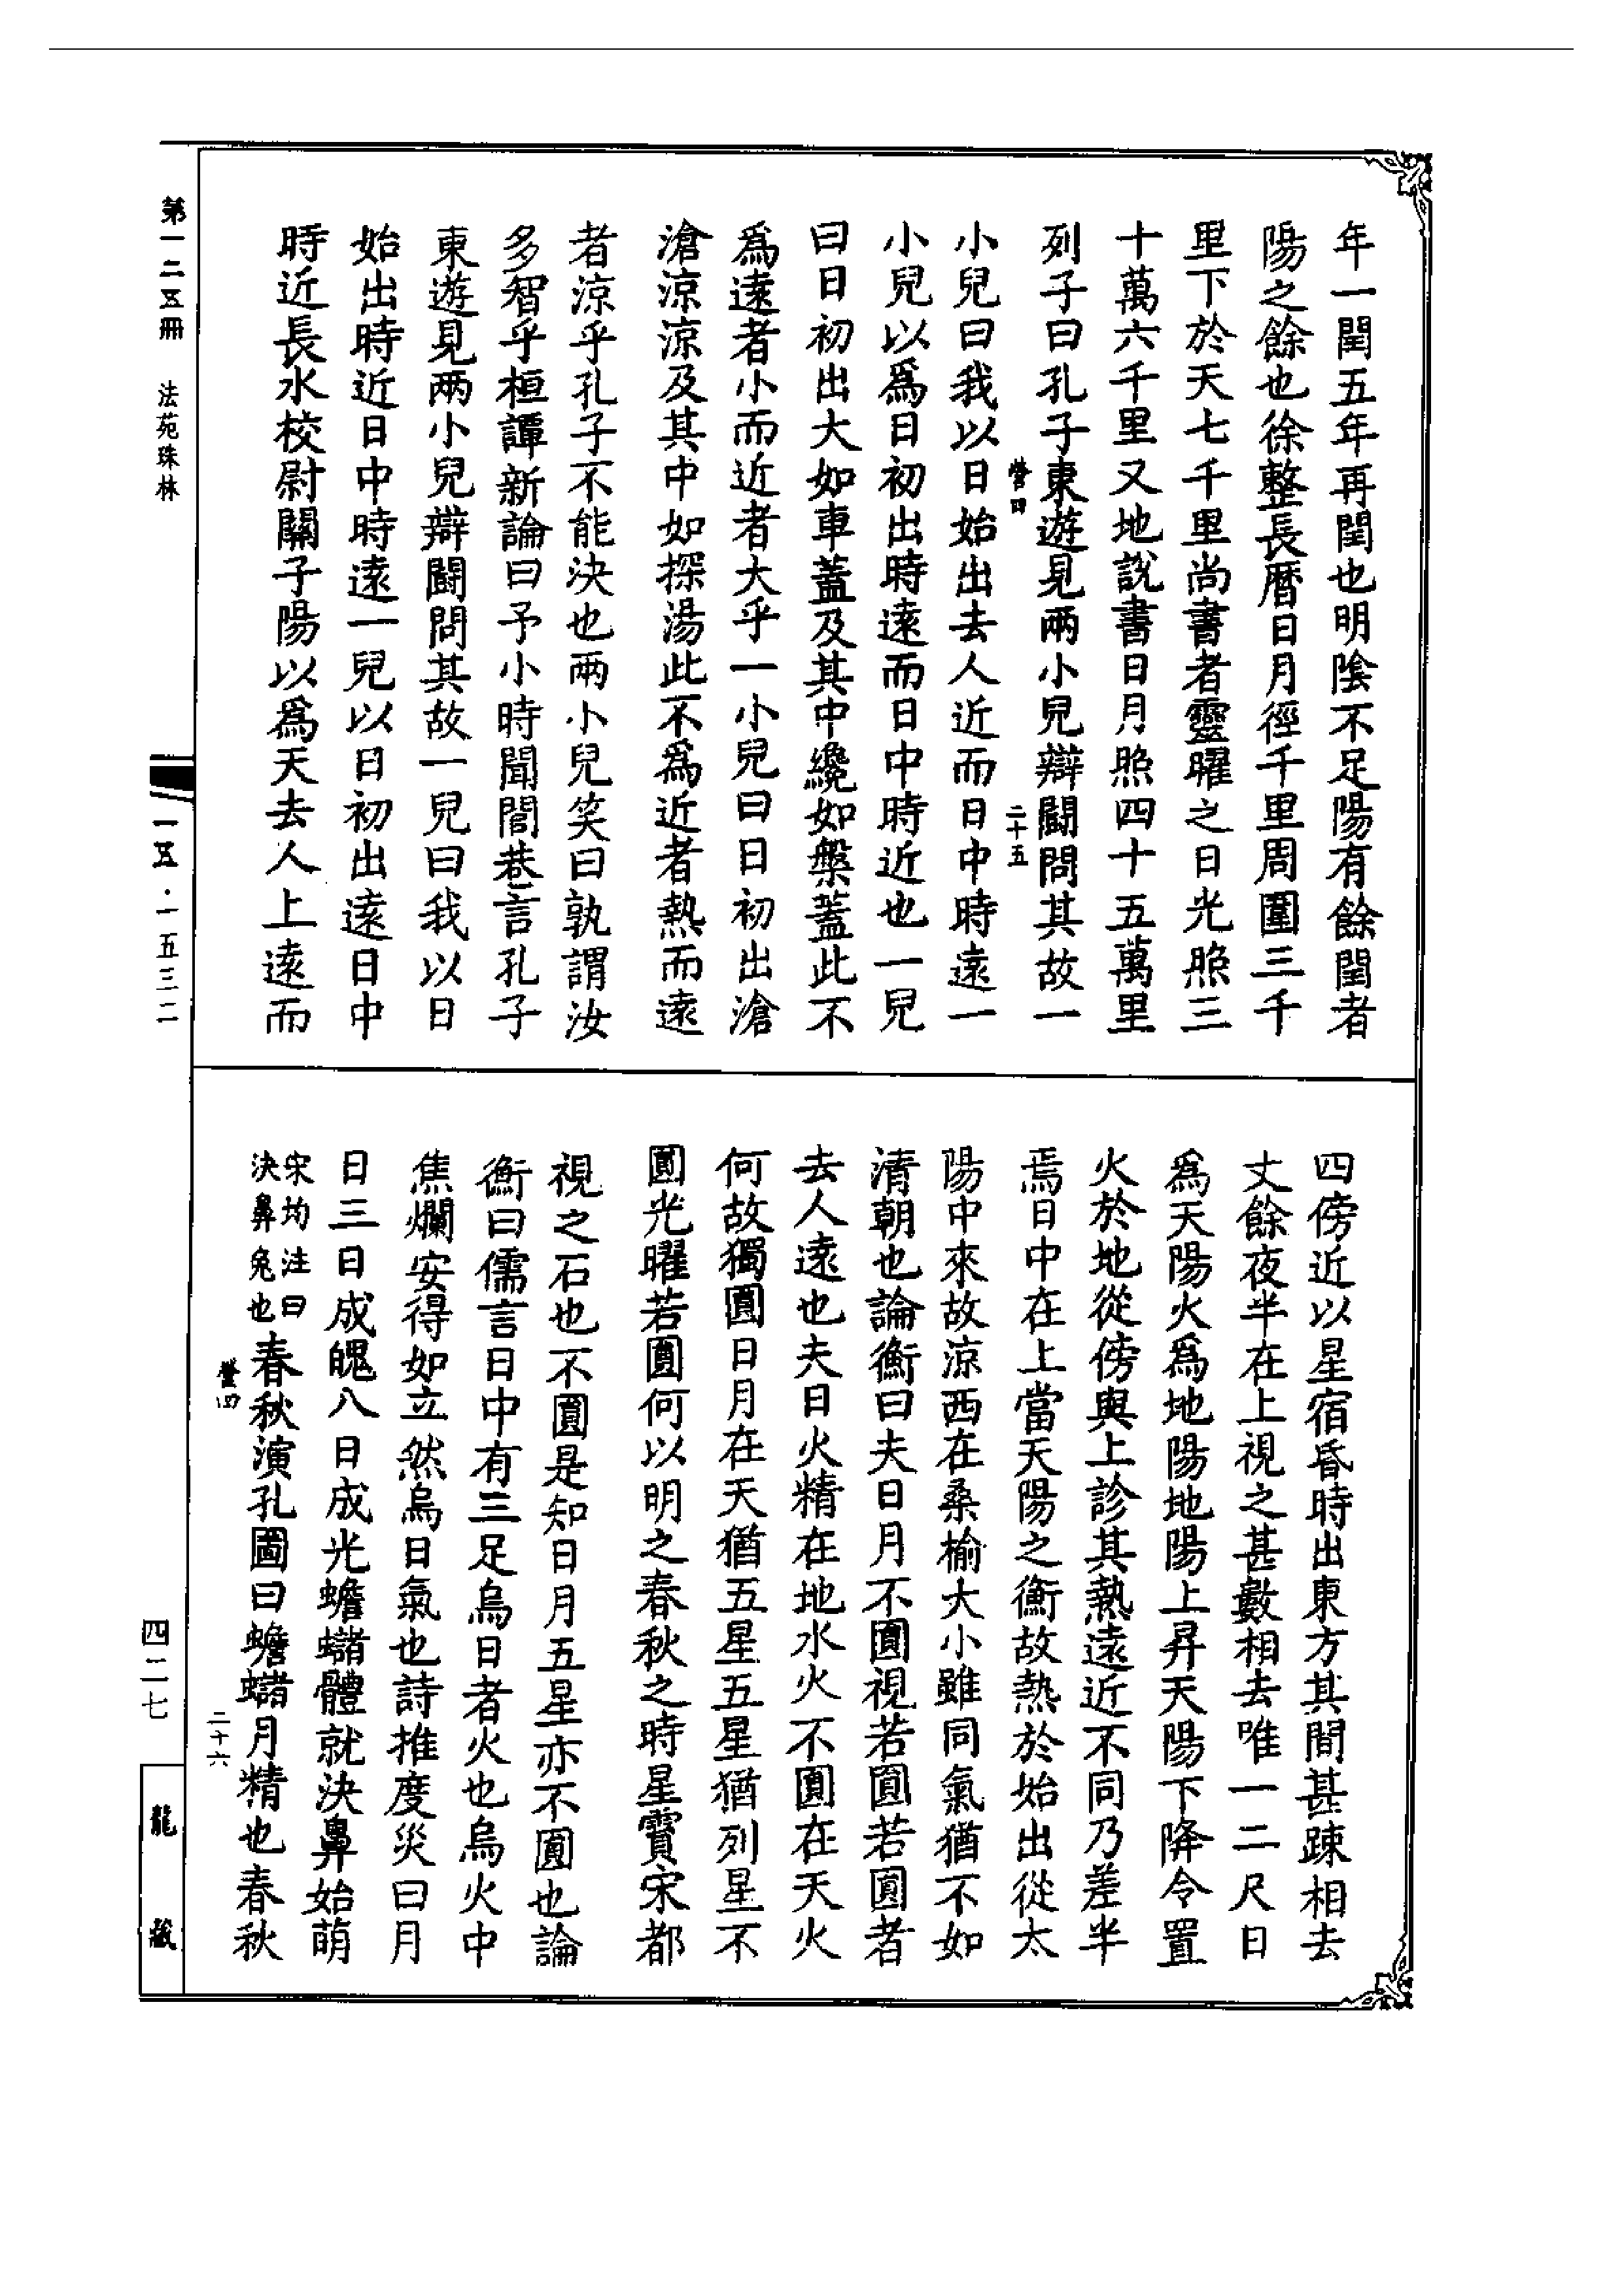 年一閏五年再閏也明陰不足陽有餘閏者
陽之餘也徐整長曆日月徑千里周圍三千
里下於天七千里尚書者靈曜之日光照三
十萬六千里又地說書日月照四十五萬里
列子曰孔子東遊見兩小兒辯鬪問其故一
營四
二十五
小兒曰我以日始出去人近而日中時遠一
小兒以爲日初出時遠而日中時近也一兒
曰日初出大如車蓋及其中纔如槃蓋此不
爲遠者小而近者大乎一小兒曰日初出滄
滄涼涼及其中如探湯此不爲近者熱而遠
者涼乎孔子不能決也兩小兒笑曰孰謂汝
多智乎桓譚新論曰予小時聞閭巷言孔子
東遊見兩小兒辯鬪問其故一兒曰我以日
始出時近日中時遠一兒以日初出遠日中
時近長水校尉關子陽以爲天去人上遠而
四傍近以星宿昏時出東方其間甚踈相去
丈餘夜半在上視之甚數相去唯一二尺日
爲天陽火爲地陽地陽上昇天陽下降令置
火於地從傍與上診其熱遠近不同乃差半
焉日中在上當天陽之衝故熱於始出從太
陽中來故涼西在桑榆大小雖同氣猶不如
清朝也論衡曰夫日月不圓視若圓若圓者
去人遠也夫日火精在地水火不圓在天火
何故獨圓日月在天猶五星五星猶列星不
圓光曜若圓何以明之春秋之時星霣宋都
視之石也不圓是知日月五星亦不圓也論
衡曰儒言日中有三足烏日者火也烏火中
焦爛安得如立然烏日氣也詩推度災曰月
日三日成魄八日成光蟾蠩體就決鼻始萌
宋均注曰
決鼻兔也
春秋演孔圖曰蟾蠩月精也春秋
營四
二十六
第一二五冊 法苑珠林
一五·一五三二
四二七
龍藏